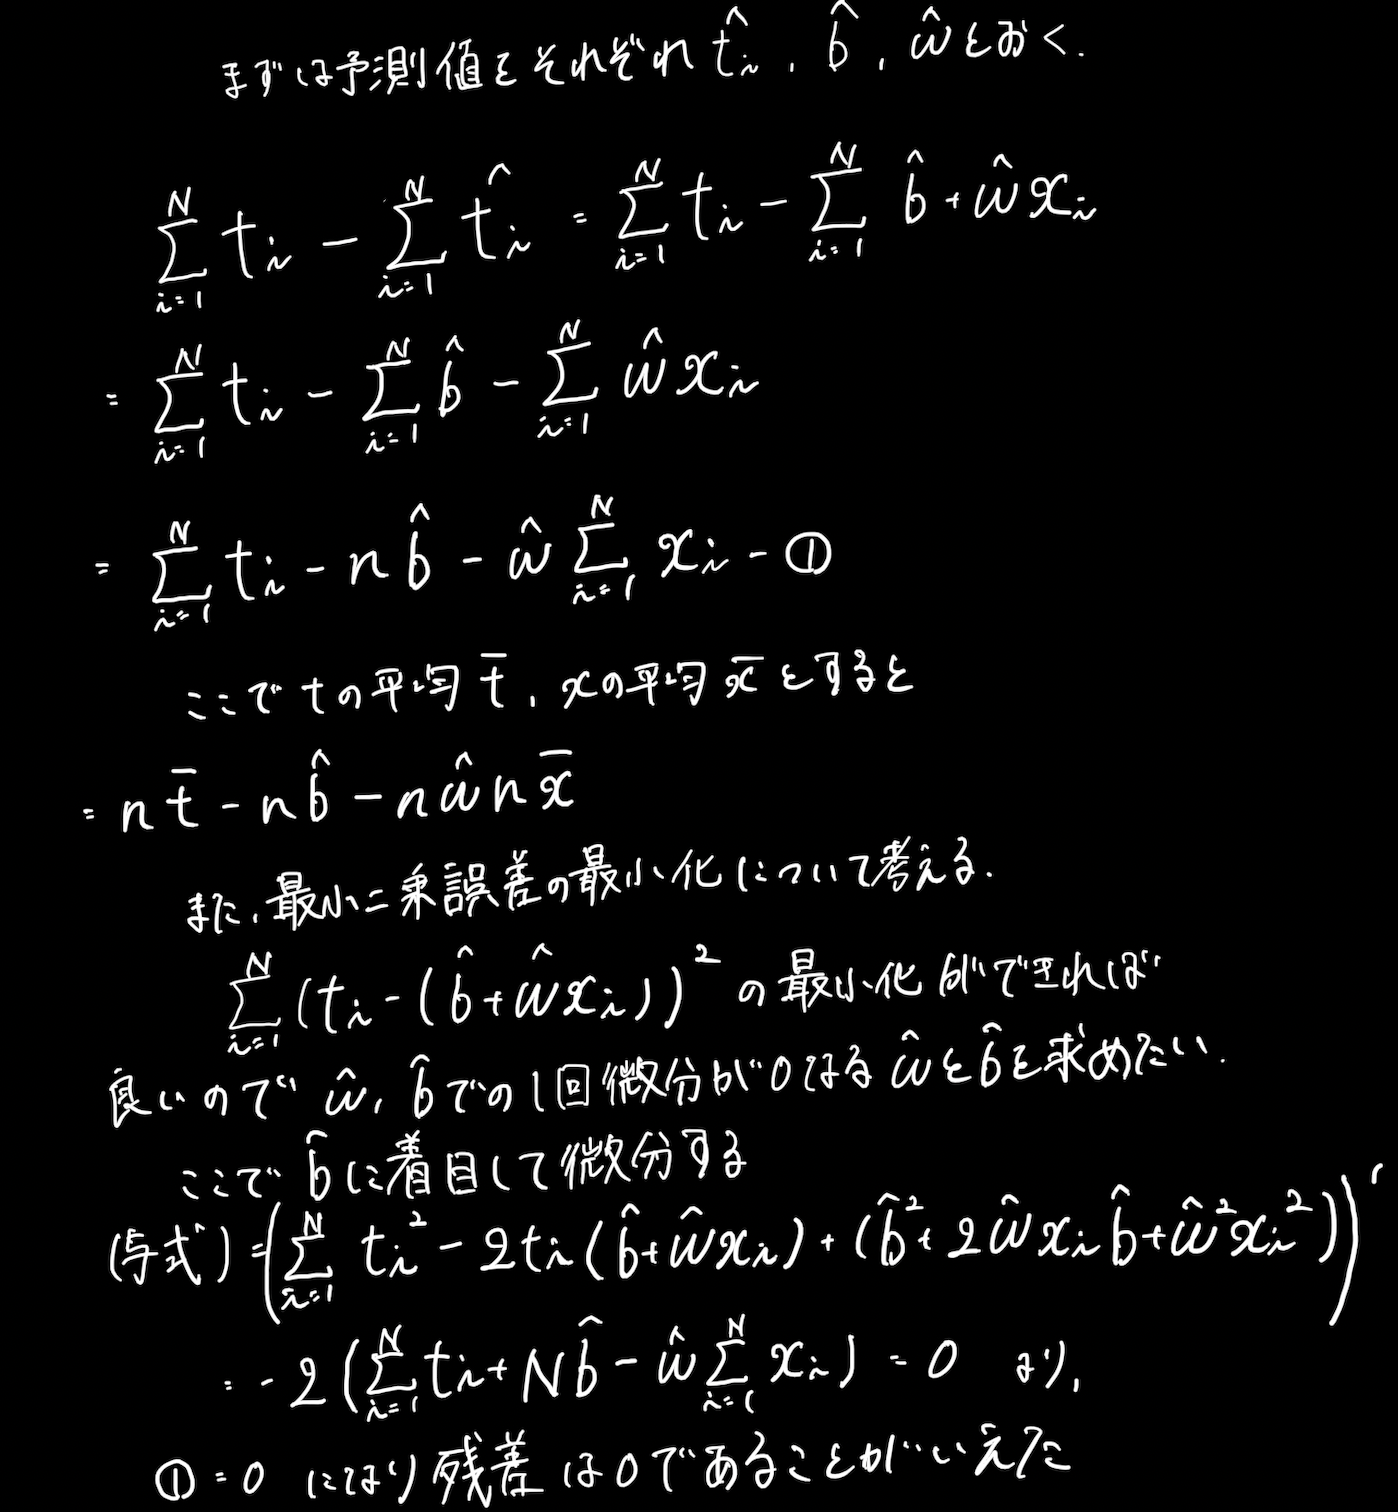 まずは予測値をそれぞれ t̂ᵢ, b̂, ŵ とおく.
∑_{i=1}^{N} tᵢ − ∑_{i=1}^{N} t̂ᵢ = ∑_{i=1}^{N} tᵢ − ∑_{i=1}^{N} b̂ + ŵxᵢ
= ∑_{i=1}^{N} tᵢ − ∑_{i=1}^{N} b̂ − ∑_{i=1}^{N} ŵxᵢ
= ∑_{i=1}^{N} tᵢ − nb̂ − ŵ ∑_{i=1}^{N} xᵢ − ①
ここで tの平均 t̄, xの平均 x̄ とすると
= nt̄ − nb̂ − nŵnx̄
また, 最小二乗誤差の最小化について考える.
∑_{i=1}^{N} (tᵢ − (b̂+ŵxᵢ))² の最小化ができれば
良いので ŵ, b̂ での1回微分が0なる ŵとb̂を求めたい.
ここで b̂に着目して微分する
(与式) = (∑_{i=1}^{N} tᵢ² − 2tᵢ(b̂+ŵxᵢ) + (b̂²+2ŵxᵢb̂+ŵ²xᵢ²))′
= −2(∑_{i=1}^{N} tᵢ + Nb̂ − ŵ∑_{i=1}^{N} xᵢ) = 0 より,
① = 0 になり残差は0であることがいえた